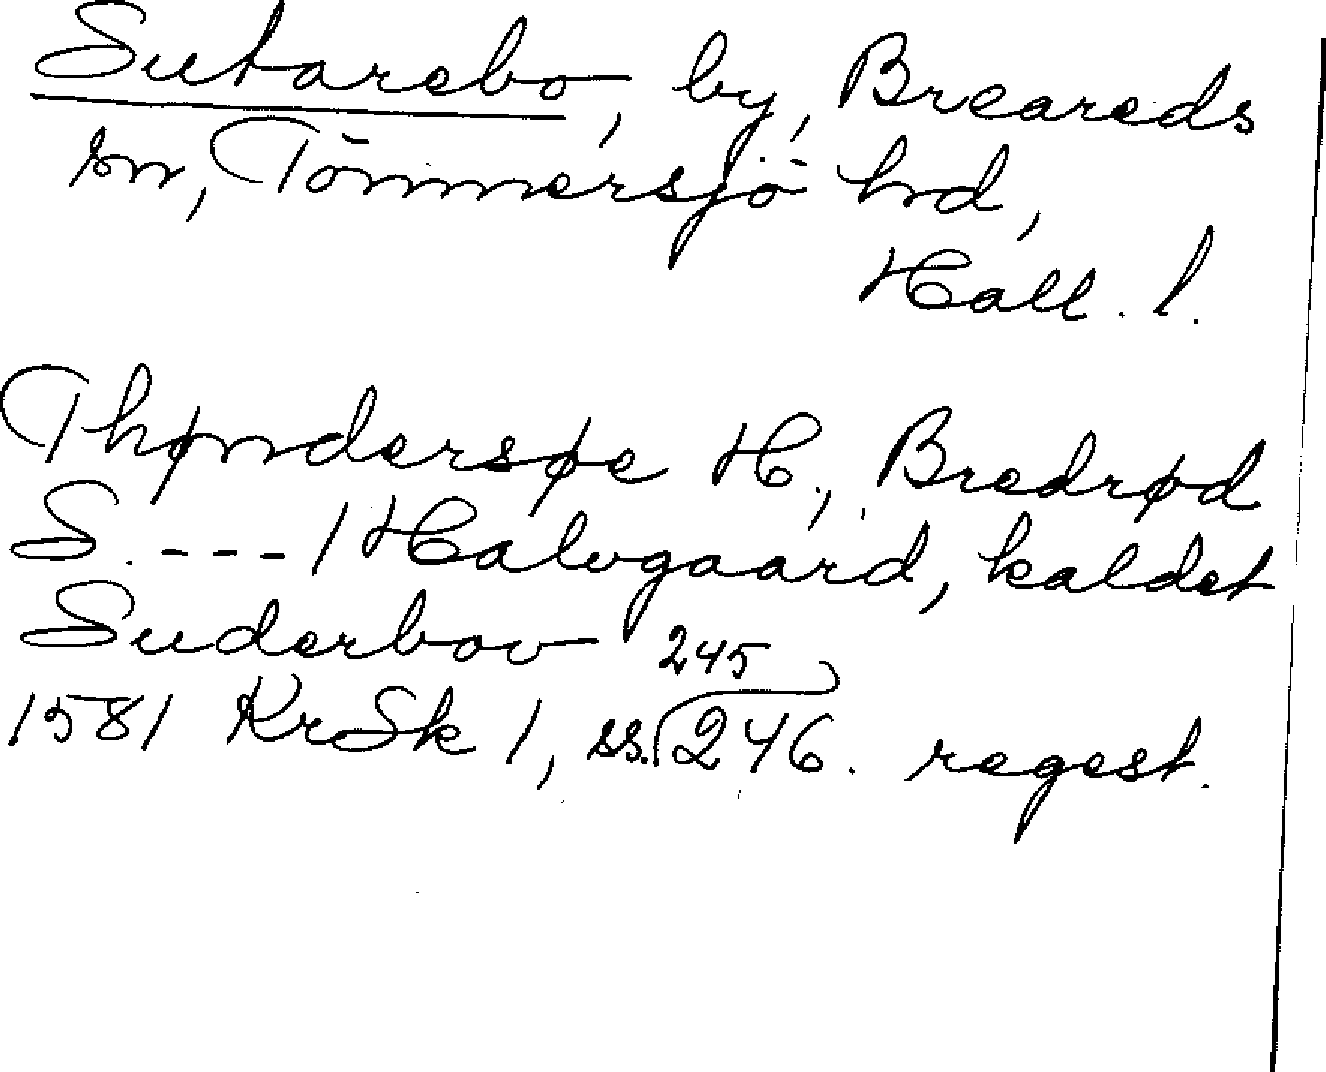 Sutarebo, by, Breareds
sn, Tönnersjö hrd,
Hall. l.
Thøndersøe H., Bredrød
S. --- 1 Halvgaard, kaldet
Suderbov
245
1581 KrSk 1, ss. 246. regest.